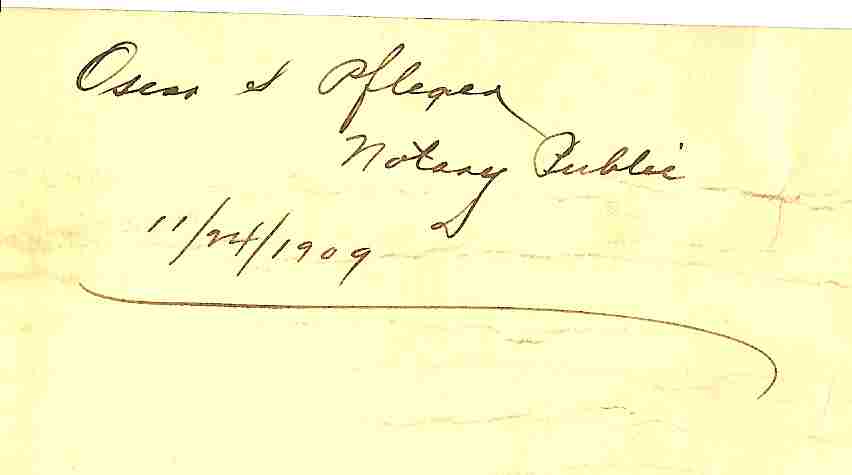 Oscar S Pfleger
Notary Public
11/24/1909